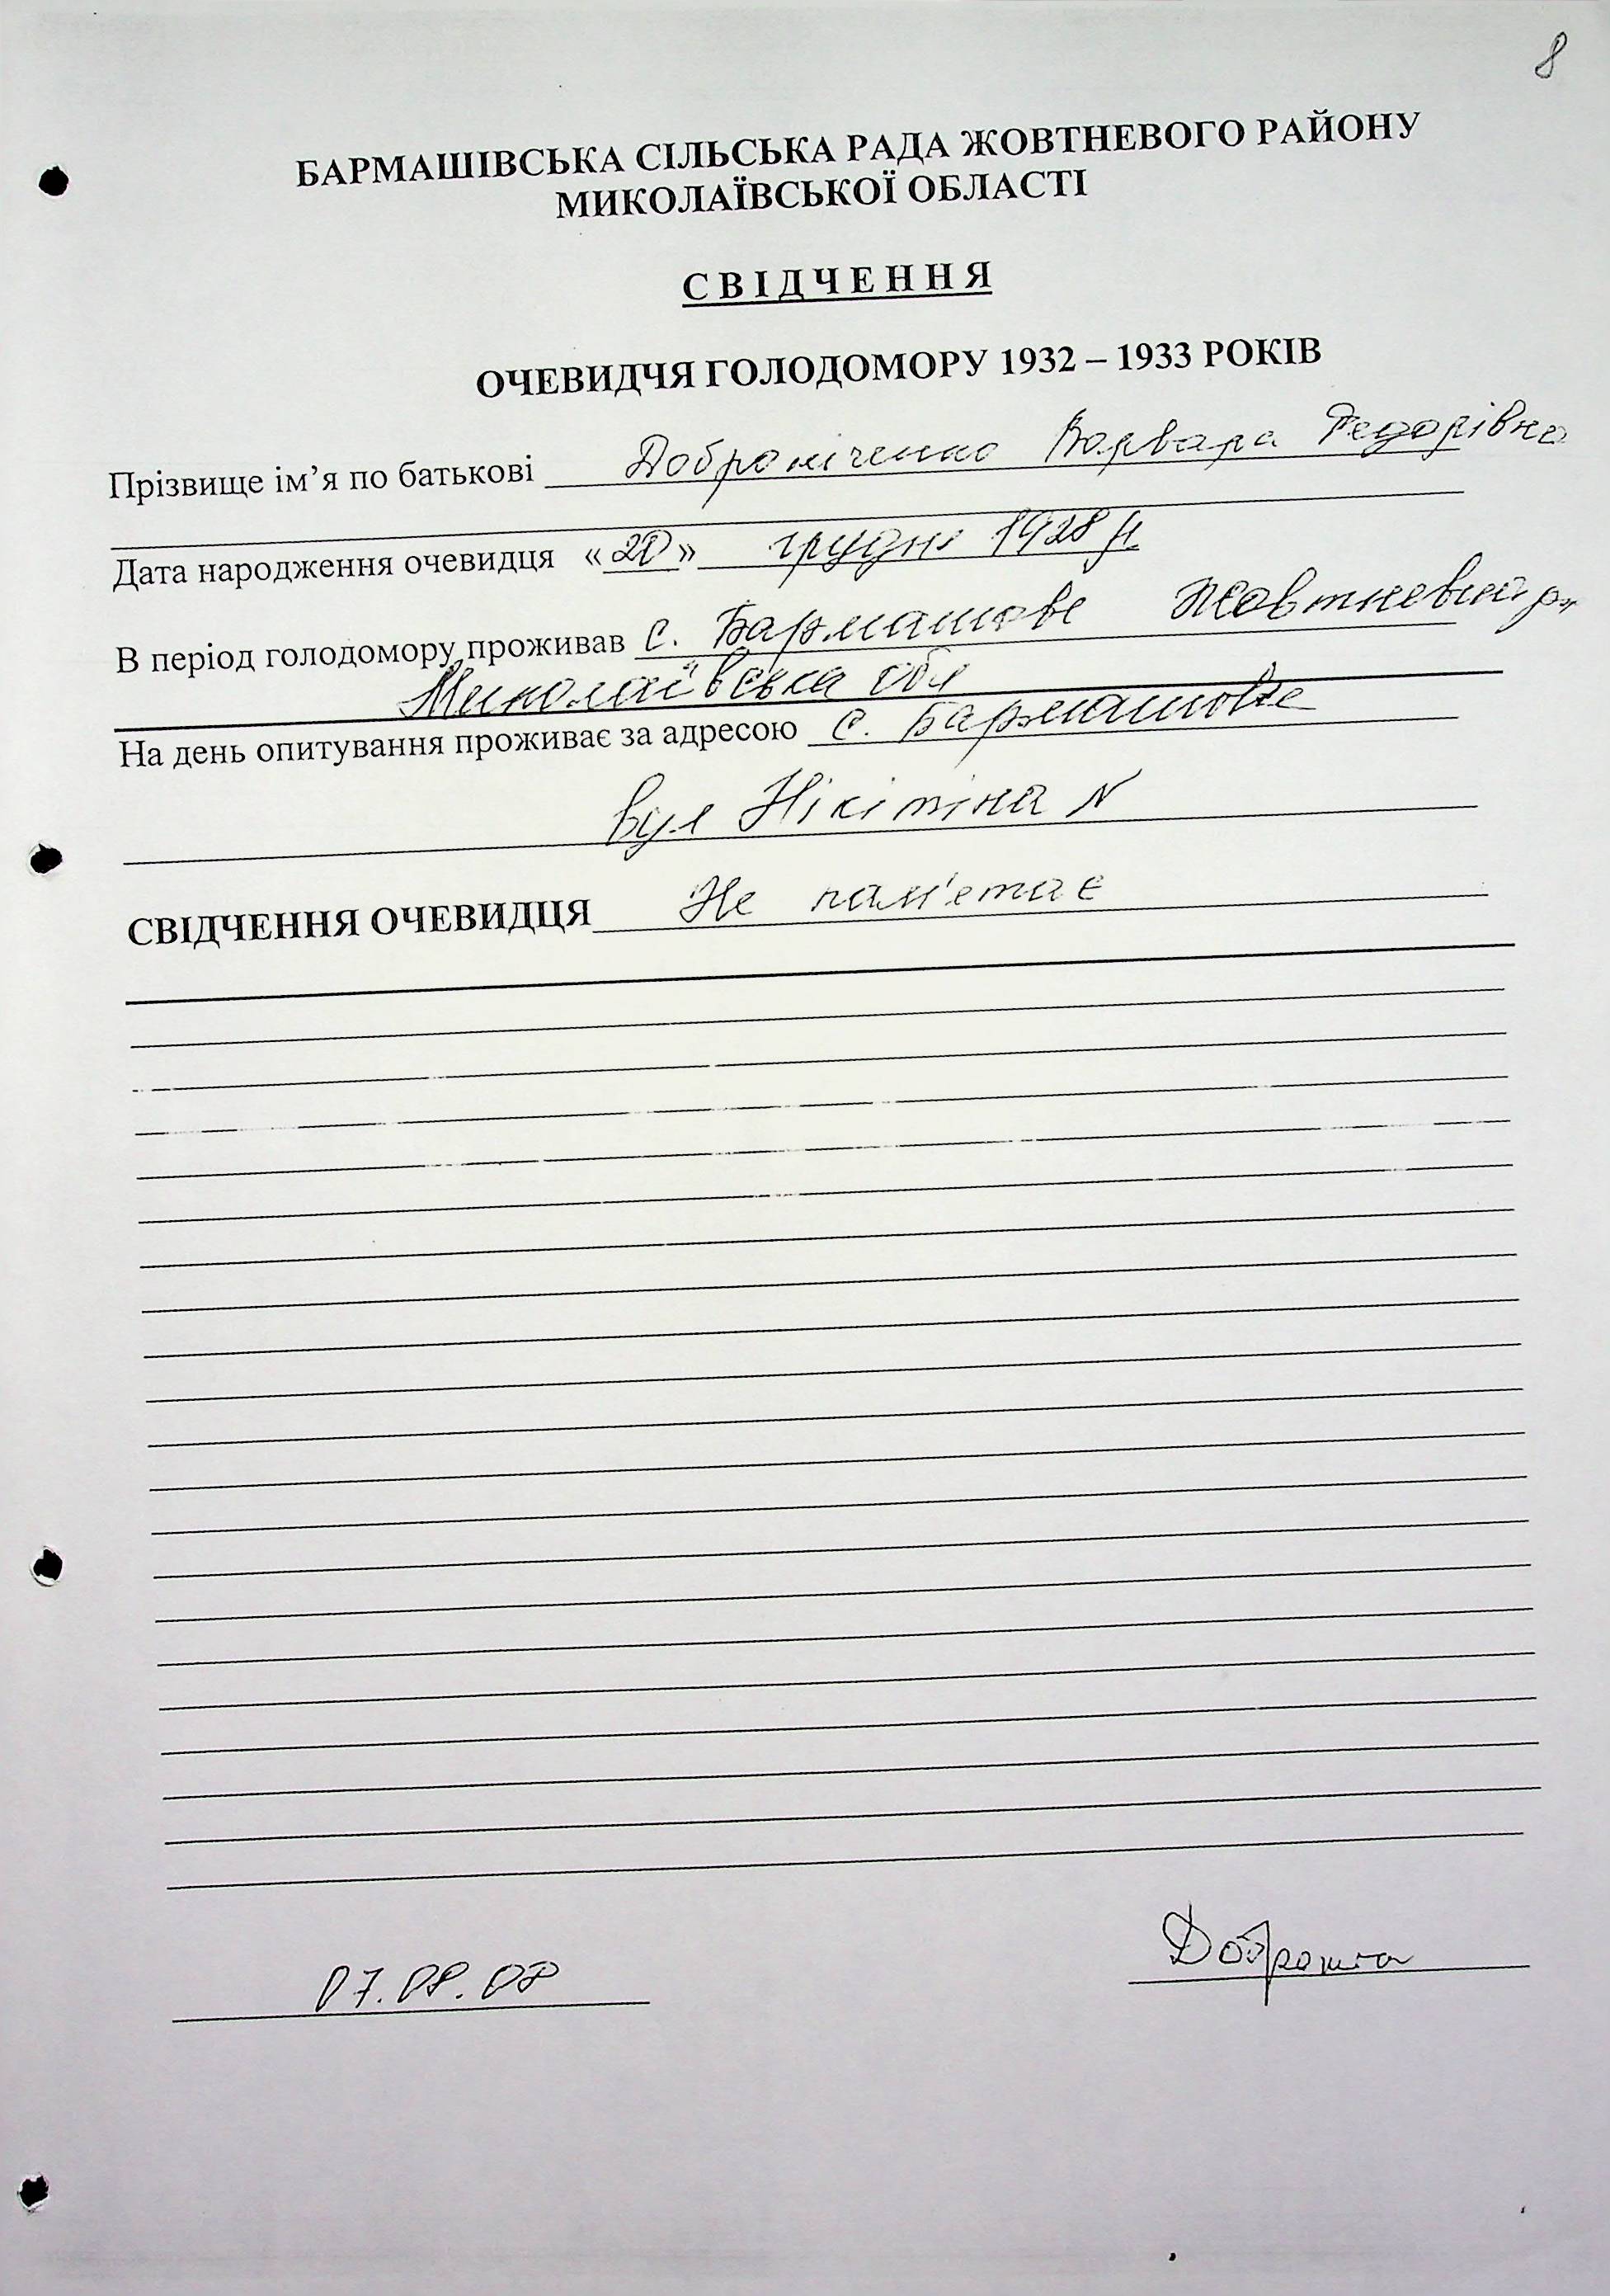 8
БАРМАШІВСЬКА СІЛЬСЬКА РАДА ЖОВТНЕВОГО РАЙОНУ
МИКОЛАЇВСЬКОЇ ОБЛАСТІ
СВІДЧЕННЯ
ОЧЕВИДЧЯ ГОЛОДОМОРУ 1932 – 1933 РОКІВ
Прізвище ім’я по батькові Варвара Федорівна
Дата народження очевидця «20» грудня 1928 р.
В період голодомору проживав с. Бармашове Жовтневий р-н
Миколаївська обл
На день опитування проживає за адресою с. Бармашове
вул Нікітіна N
СВІДЧЕННЯ ОЧЕВИДЦЯ Не пам'етає
07.08.08